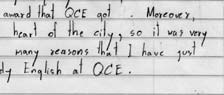 award that QCE got . Moreover,
heart of the city, so it was very
many reasons that I have just
dy English at QCE.